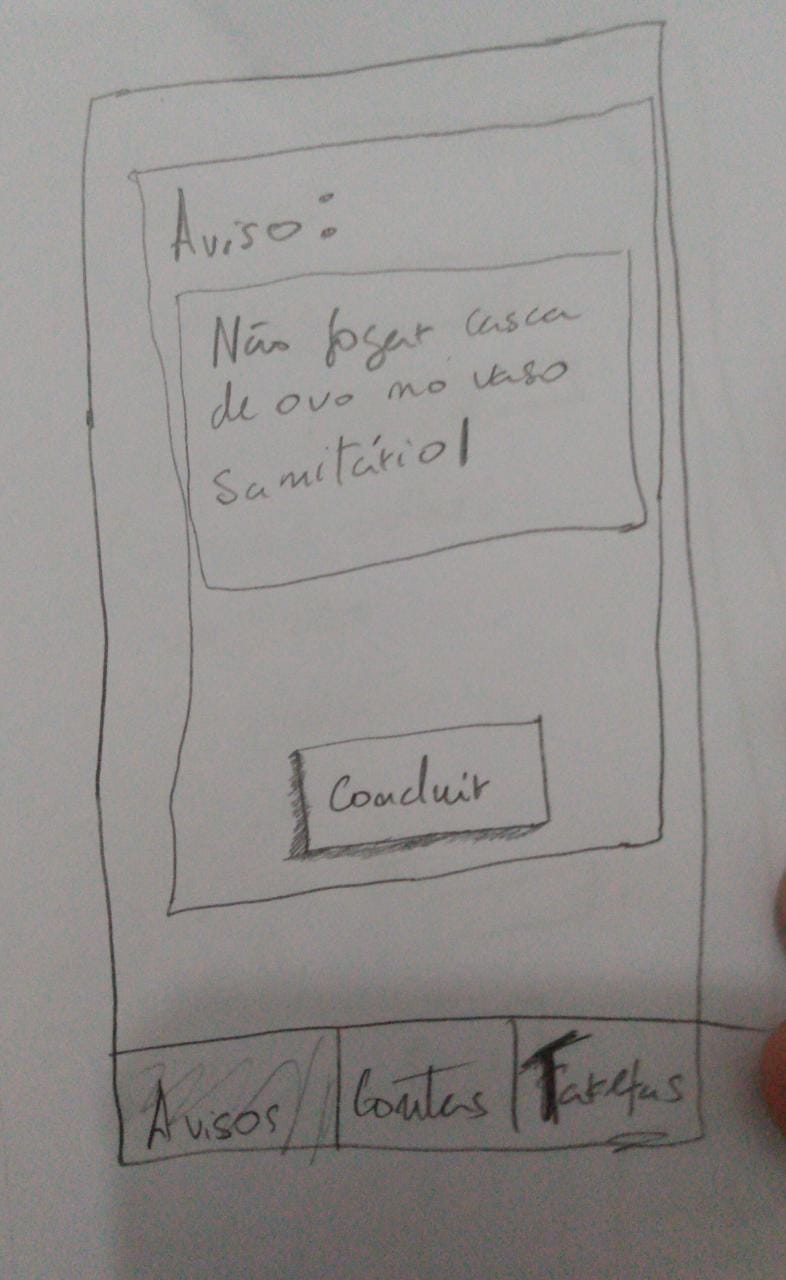 Aviso:
Não jogar casca
de ovo no vaso
sanitário|
Concluir
Avisos Contas Tarefas